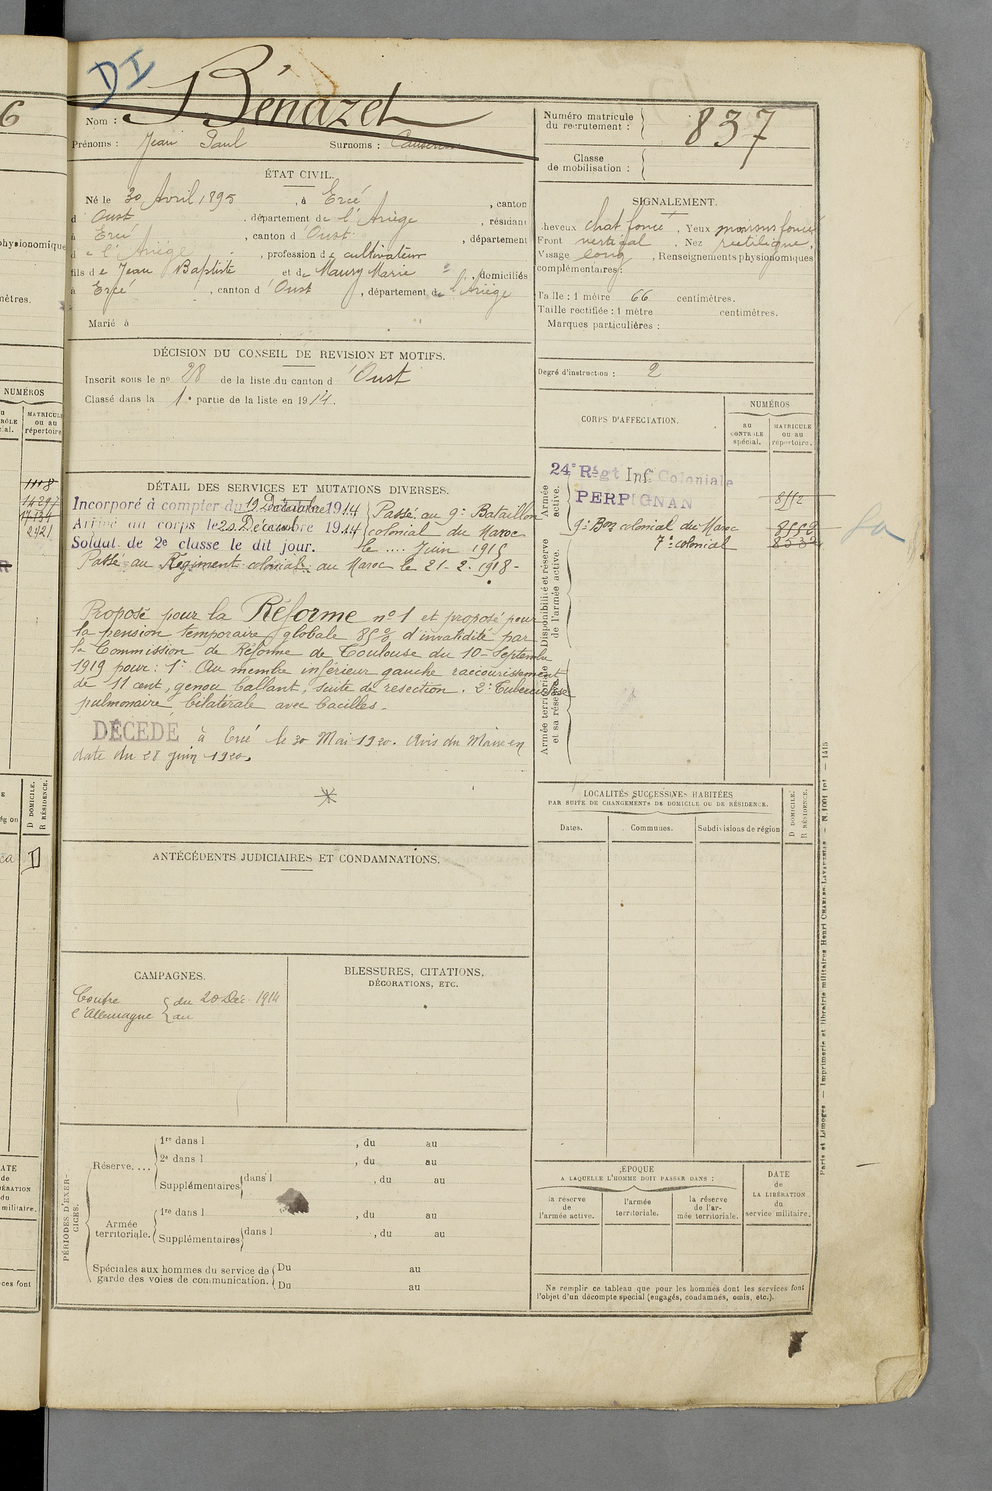 DI
Nom : Bénazet
Prénoms : Jean Paul Surnoms :
Numéro matricule
du recrutement : 837
Classe
de mobilisation :
ÉTAT CIVIL.
Né le 30 Avril 1895, à Ercé, canton
d'Oust, département de l'Ariège, résidant
à Ercé, canton d'Oust, département
de l'Ariège, profession de cultivateur
fils de Jean Baptiste et de Maury Marie, domiciliés
à Ercé, canton d'Oust, département de l'Ariège
Marié à
SIGNALEMENT.
Cheveux chat foncé, Yeux marrons foncé
Front vertical, Nez rectiligne,
Visage long, Renseignements physionomiques
complémentaires :
Taille : 1 mètre 66 centimètres.
Taille rectifiée : 1 mètre centimètres.
Marques particulières :
Degré d'instruction : 2
DÉCISION DU CONSEIL DE REVISION ET MOTIFS.
Inscrit sous le no 28 de la liste du canton d'Oust
Classé dans la 1e partie de la liste en 1914.
DÉTAIL DES SERVICES ET MUTATIONS DIVERSES.
Incorporé à compter du 19 Décembre 1914
Arrivé au corps le 20 Décembre 1914
Soldat de 2e classe le dit jour.
Passé au 9e Bataillon
colonial du Maroc
le .... Juin 1915
Passé au Régiment colonial au Maroc le 21-2-1918-
Proposé pour la Réforme no 1 et proposé pour
la pension temporaire globale 85% d'invalidité par
la Commission de Réforme de Toulouse du 10 Septembre
1919 pour : 1° Au membre inférieur gauche raccourissement
de 11 cent, genou ballant, suite de resection. 2° Tuberculose
pulmonaire bilatérale avec bacilles.
DÉCÉDÉ à Ercé le 30 Mai 1920. Avis du Maire en
date du 28 Juin 1920.
CORPS D'AFFECTATION.
NUMÉROS
AU CONTROLE spécial.
MATRICULE ou au répertoire.
Armée active.
24e Rgt Inf Coloniale
PERPIGNAN
9e Bon colonial du Maroc
7e colonial
Disponibilité et réserve de l'armée active.
Armée territoriale et sa réserve.
LOCALITÉS SUCCESSIVES HABITÉES
PAR SUITE DE CHANGEMENTS DE DOMICILE OU DE RÉSIDENCE.
Dates. Communes. Subdivisions de région
D DOMICILE.
R RÉSIDENCE.
ANTÉCÉDENTS JUDICIAIRES ET CONDAMNATIONS.
CAMPAGNES.
Contre
l'Allemagne
du 20 Déc 1914
au
BLESSURES, CITATIONS,
DÉCORATIONS, ETC.
PÉRIODES D'EXERCICES.
Réserve....
1re dans l , du au
2e dans l , du au
Supplémentaires dans l , du au
Armée territoriale.
1re dans l , du au
Supplémentaires dans l , du au
Spéciales aux hommes du service de
garde des voies de communication.
Du au
Du au
ÉPOQUE
A LAQUELLE L'HOMME DOIT PASSER DANS :
la réserve de l'armée active.
l'armée territoriale.
la réserve de l'armée territoriale.
DATE
de
LA LIBÉRATION
du
service militaire.
Ne remplir ce tableau que pour les hommes dont les services font
l'objet d'un décompte spécial (engagés, condamnés, omis, etc.).